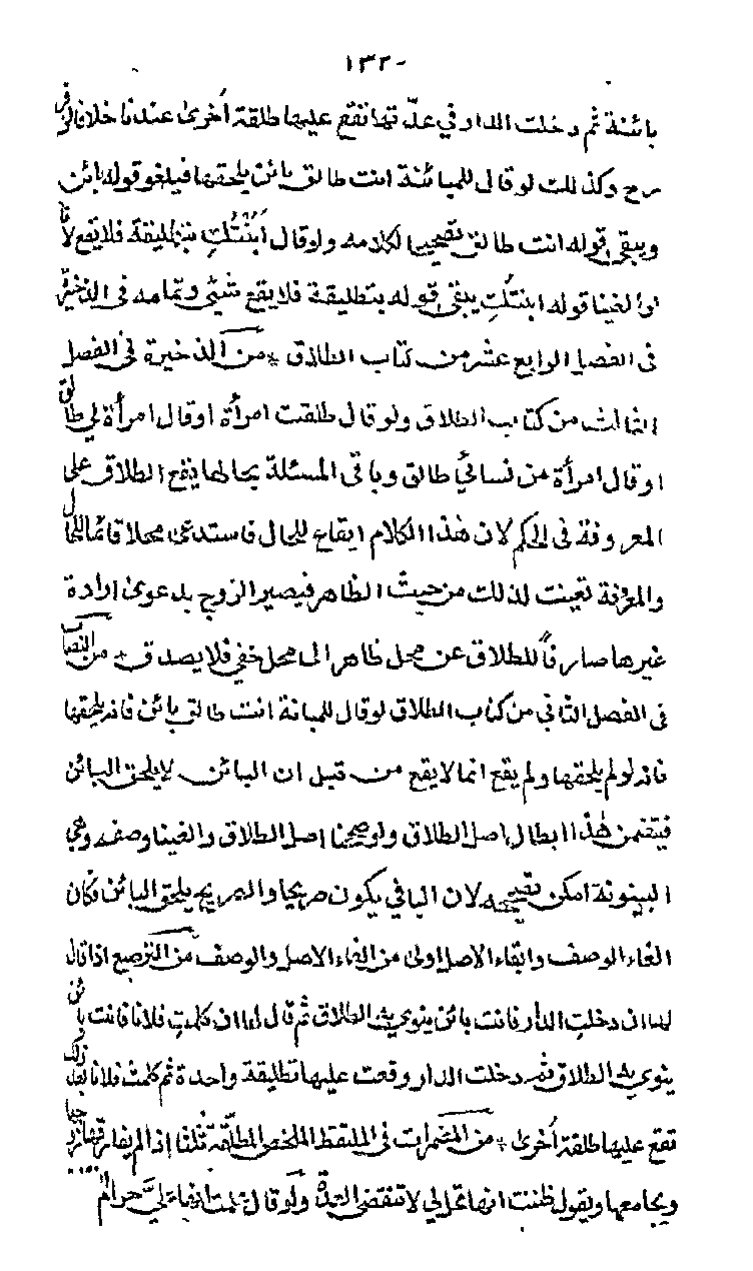 ١٣٢٠
بائنة ثم دخلت الدار في عدّتها تقع عليها طلقة أخرى عندنا خلافا لزفر
رح وكذلك لو قال للمبائنة انت طالق بائن يلحقها فيلغو قوله بائن
ويبقى قوله انت طالق تصحيحا لكلامه ولو قال أبنتُكِ بتطليقة فلا يقع لأنا
لو الغينا قوله ابنتكِ يبقى قوله بتطليقة فلا يقع شئ وتمامه فى الذخيرة
فى الفصل الرابع عشر من كتاب الطلاق * من الذخيرة فى الفصل
الثالث من كتاب الطلاق ولو قال طلقت امرأة او قال امرأة لي طالق
او قال امرأة من نسائي طالق وباقى المسئلة بحالها يقع الطلاق على
المعروفة فى الحكم لان هذا الكلام ايقاع للحال فاستدعى محلا قائما للحال
والمعرفة تعينت لذلك من حيث الظاهر فيصير الزوج بدعوى ارادة
غيرها صارفاً للطلاق عن محل ظاهر الى محل خفي فلا يصدق * من النصاب
فى الفصل الثاني من كتاب الطلاق لو قال للمبانة انت طالق بائن فانه يلحقها
فانه لو لم يلحقها ولم يقع انما لا يقع من قبل ان البائن لا يلحق البائن
فيتضمن هذا ابطال اصل الطلاق ولو صححنا اصل الطلاق والغينا وصفه وهي
البينونة امكن تصحيحه لان الباقي يكون صريحا والصريح يلحق البائن فكان
الغاء الوصف وابقاء الاصل اولى من الغاء الاصل والوصف من الترصيع اذا قال
لها ان دخلتِ الدار فانت بائن ينوي به الطلاق ثم قال لها ان كلمتِ فلانا فانت بائن
ينوي به الطلاق ثم دخلت الدار وقعت عليها تطليقة واحدة ثم كلمت فلانا بعد ذلك
تقع عليها طلقة أخرى * من المضمرات فى الملتقط الملخص المطلّقة ثلثا إذا لم يفارقها زوجها
ويجامعها ويقول ظننت انها تحل لي لا تنقضي العدّة ولو قال علمت انها عليَّ حرام